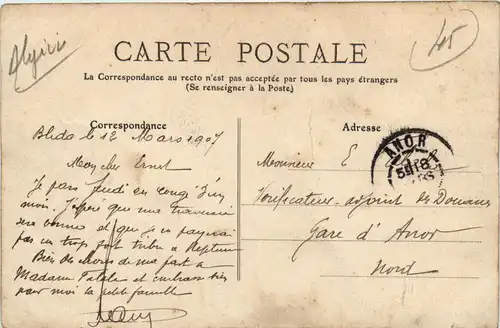 Algérie
45
CARTE POSTALE
La Correspondance au recto n'est pas acceptée par tous les pays étrangers
(Se renseigner à la Poste)
Correspondance
Adresse
Blida le 12 Mars 1907
Mon cher Ernest
Je pars Jeudi en congé d'un
mois. J'espère que ma traversée
sera bonne et que je ne payerai
pas un trop fort tribu à Neptune
Bien des choses de ma part à
Madame et embrasse bien
pour moi la petite famille
Monsieur E
Vérificateur-adjoint des Douanes
Gare d'Anor
Nord
ANOR